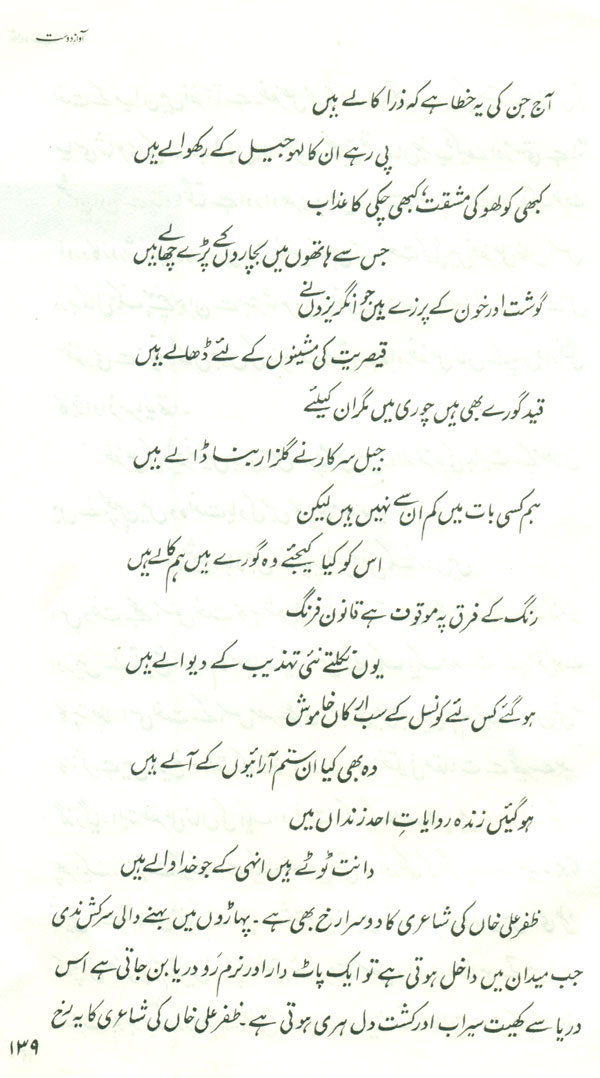 آواز دوست
آج جن کی یہ خطا ہے کہ ذرا کالے ہیں
پی رہے ان کا لہو جیل کے رکھوالے ہیں
کبھی کولھو کی مشقت، کبھی چکی کا عذاب
جس سے ہاتھوں میں بچاروں کے پڑے چھالے ہیں
گوشت اور خون کے پرزے ہیں جو انگریزوں نے
قیصریت کی مشینوں کے لئے ڈھالے ہیں
قید گورے بھی ہیں چوری میں مگر ان کیلئے
جیل سرکار نے گلزار بنا ڈالے ہیں
ہم کسی بات میں کم ان سے نہیں ہیں لیکن
اس کو کیا کیجئے وہ گورے ہیں ہم کالے ہیں
رنگ کے فرق پہ موقوف ہے قانون فرنگ
یوں نکلتے نئی تہذیب کے دیوالے ہیں
ہو گئے کس لئے کونسل کے سب ارکان خاموش
وہ بھی کیا ان ستم آرائیوں کے آلے ہیں
ہو گئیں زندہ روایاتِ احد زنداں میں
دانت ٹوٹے ہیں انہی کے جو خدا والے ہیں
ظفر علی خاں کی شاعری کا دوسرا رخ بھی ہے۔ پہاڑوں میں بہنے والی سرکش ندی
جب میدان میں داخل ہوتی ہے تو ایک پاٹ دار اور نرم رَو دریا بن جاتی ہے اس
دریا سے کھیت سیراب اور کشت دل ہری ہوتی ہے۔ ظفر علی خاں کی شاعری کا یہ رخ
۱۳۹